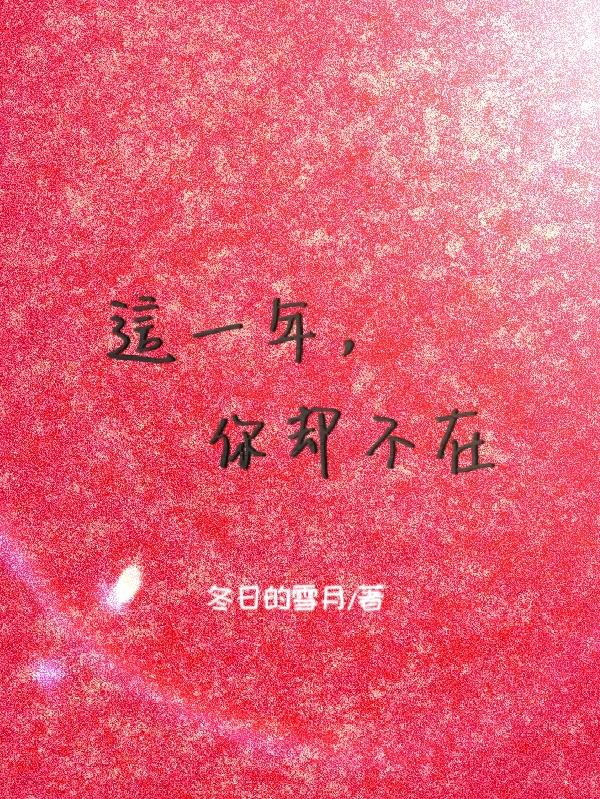 這一年，
你却不在
冬日的雪月/著